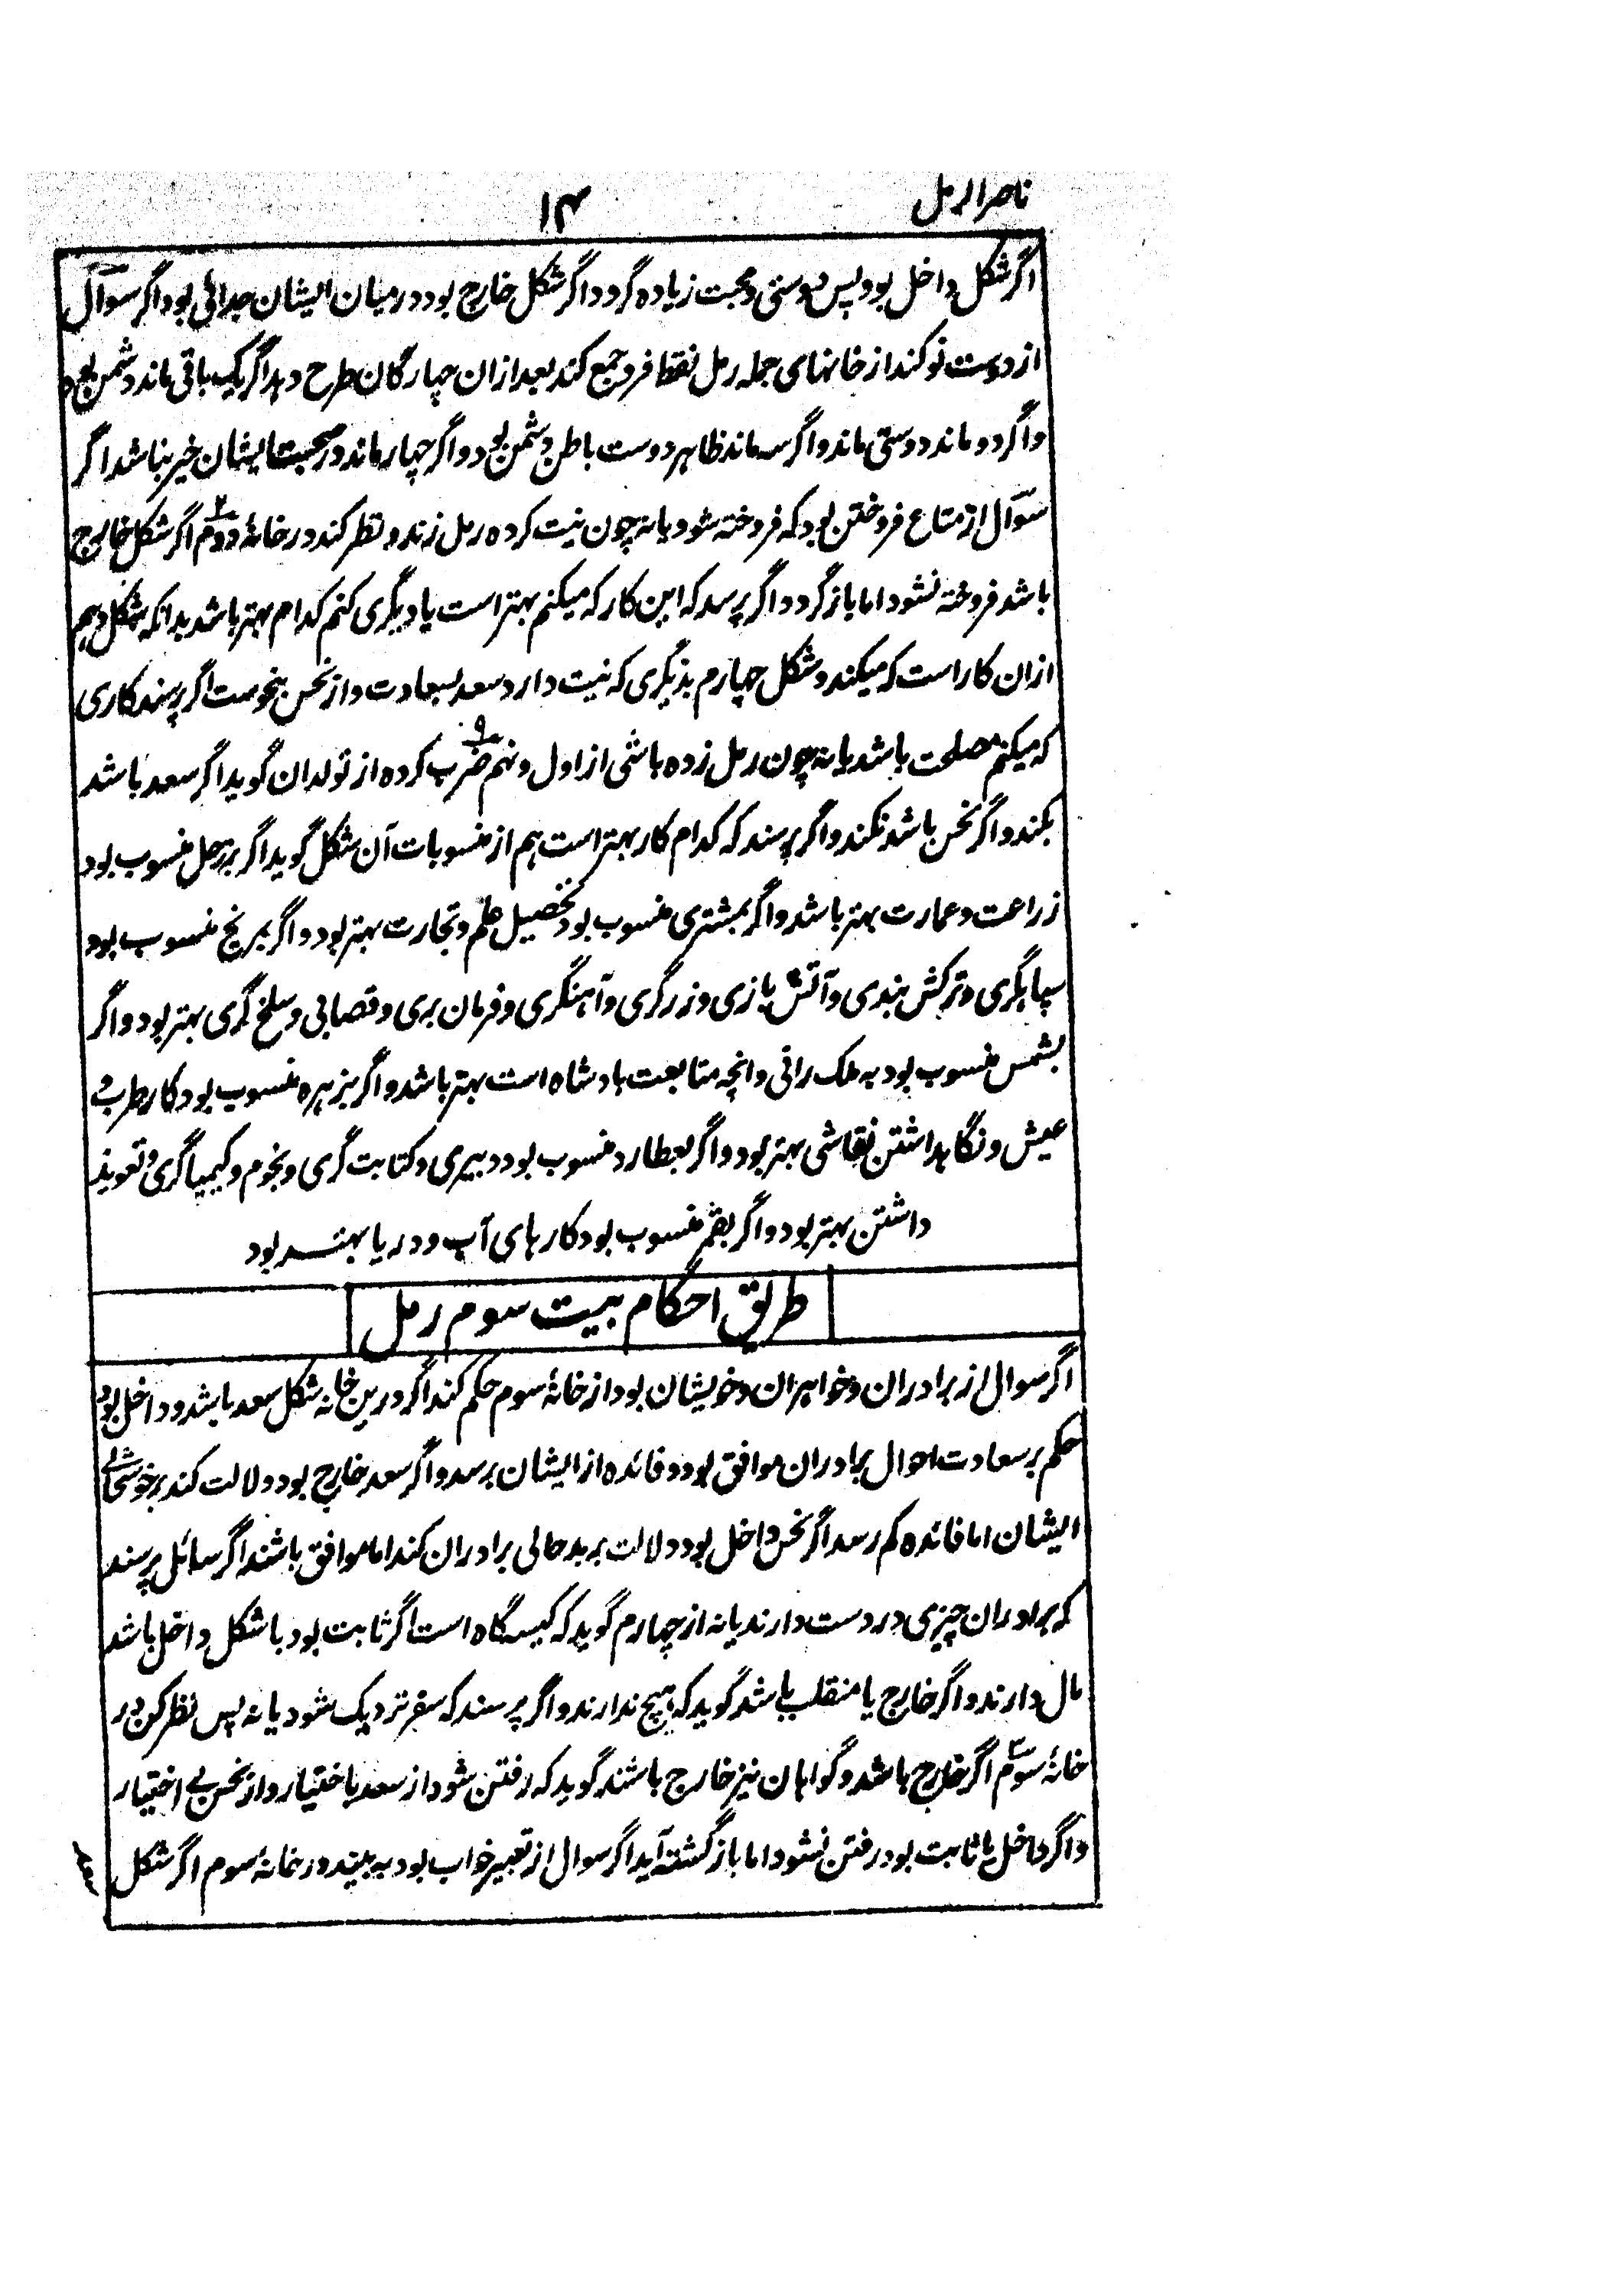 ناصر الرمل
۱۴
اگر شکل داخل بود پس دوستی و محبت زیاده گردد اگر شکل خارج بود درمیان ایشان جدائی بود اگر سوال
از دوست نو کند از خانهای جمله رمل نقطا فرد جمع کند بعد ازان چهارگان طرح دهد اگر یک باقی ماند دشمن بود
واگر دو ماند دوستی ماند واگر سه ماند ظاهر دوست باطن دشمن بود واگر چهار ماند در صحبت ایشان خیر نباشد اگر
سوال از متاع فروختن بود که فروخته شود یا نه چون نیت کرده رمل زند و نظر کند در خانهٔ دوم ۲ اگر شکل خارج
باشد فروخته نشود اما باز گردد اگر پرسد که این کار که میکنم بهتر است یا دیگری کنم کدام بهتر باشد بدانکه شکل دهم
ازان کار است که میکند و شکل چهارم بدیگری که نیت دارد سعد بسعادت واز نحس بنحوست اگر پرسند کاری
که میکنم مصلحت باشد یا نه چون رمل زده باشی از اول و نهم ۹ ضرب کرده از تولد ان گوید اگر سعد باشد
بکند واگر نحس باشد نکند واگر پرسند که کدام کار بهتر است هم از منسوبات آن شکل گوید اگر بزحل منسوب بود
زراعت و عمارت بهتر باشد واگر بمشتری منسوب بود تحصیل علم و تجارت بهتر بود واگر بمریخ منسوب بود
سپاهگری و ترکش بندی و آتش بازی و زرگری و آهنگری و فرمان بری و قصابی و سلخ گری بهتر بود واگر
بشمس منسوب بود به ملک رانی وانچه متابعت بادشاه است بهتر باشد واگر بزهره منسوب بود کار طرب و
عیش و نگاهداشتن نقاشی بهتر بود واگر بعطارد منسوب بود دبیری و کتابت گری و نجوم و کیمیاگری و تعویذ
داشتن بهتر بود واگر بقمر منسوب بود کارهای آب و دریا بهتر بود
طریق احکام بیت سوم رمل
اگر سوال از برادران و خواهران و خویشان بود از خانهٔ سوم حکم کند اگر درین خانه شکل سعد باشد و داخل بود
حکم بر سعادت احوال برادران موافق بود و فائده از ایشان برسد واگر سعد خارج بود دلالت کند بر خوشحالی
ایشان اما فائده کم رسد اگر نحس داخل بود دلالت بر بدحالی برادران کند اما موافق باشند اگر سائل پرسند
که برادران چیزی در دست دارند یا نه از چهارم گوید که کیسه گاه است اگر ثابت بود با شکل داخل باشد
مال دارند واگر خارج یا منقلب باشد گوید که هیچ ندارند واگر پرسند که سفر نزدیک شود یا نه پس نظر کن در
خانهٔ سوم ۳ اگر خارج باشد و گواهان نیز خارج باشند گوید که رفتن شود از سعد باختیار واز نحس بے اختیار
واگر داخل یا ثابت بود رفتن نشود اما باز گشته آید اگر سوال از تعبیر خواب بود به بیند در خانهٔ سوم اگر شکل